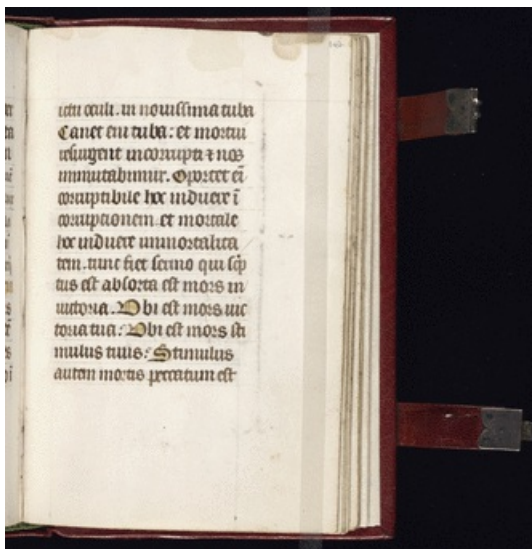 ictu oculi. in novissima tuba
Canet eni tuba: et mortui
resurgent incorrupti ⁊ nos
immutabimur. Oportet eī
corruptibile hoc induere ī
corruptionem et mortale
hoc induere immortalita
tem. tunc fiet sermo qui scp̄
tus est absorta est mors in
victoria. Ubi est mors vic
toria tua: Ubi est mors sti
mulus tuus: Stimulus
autem mortis peccatum est